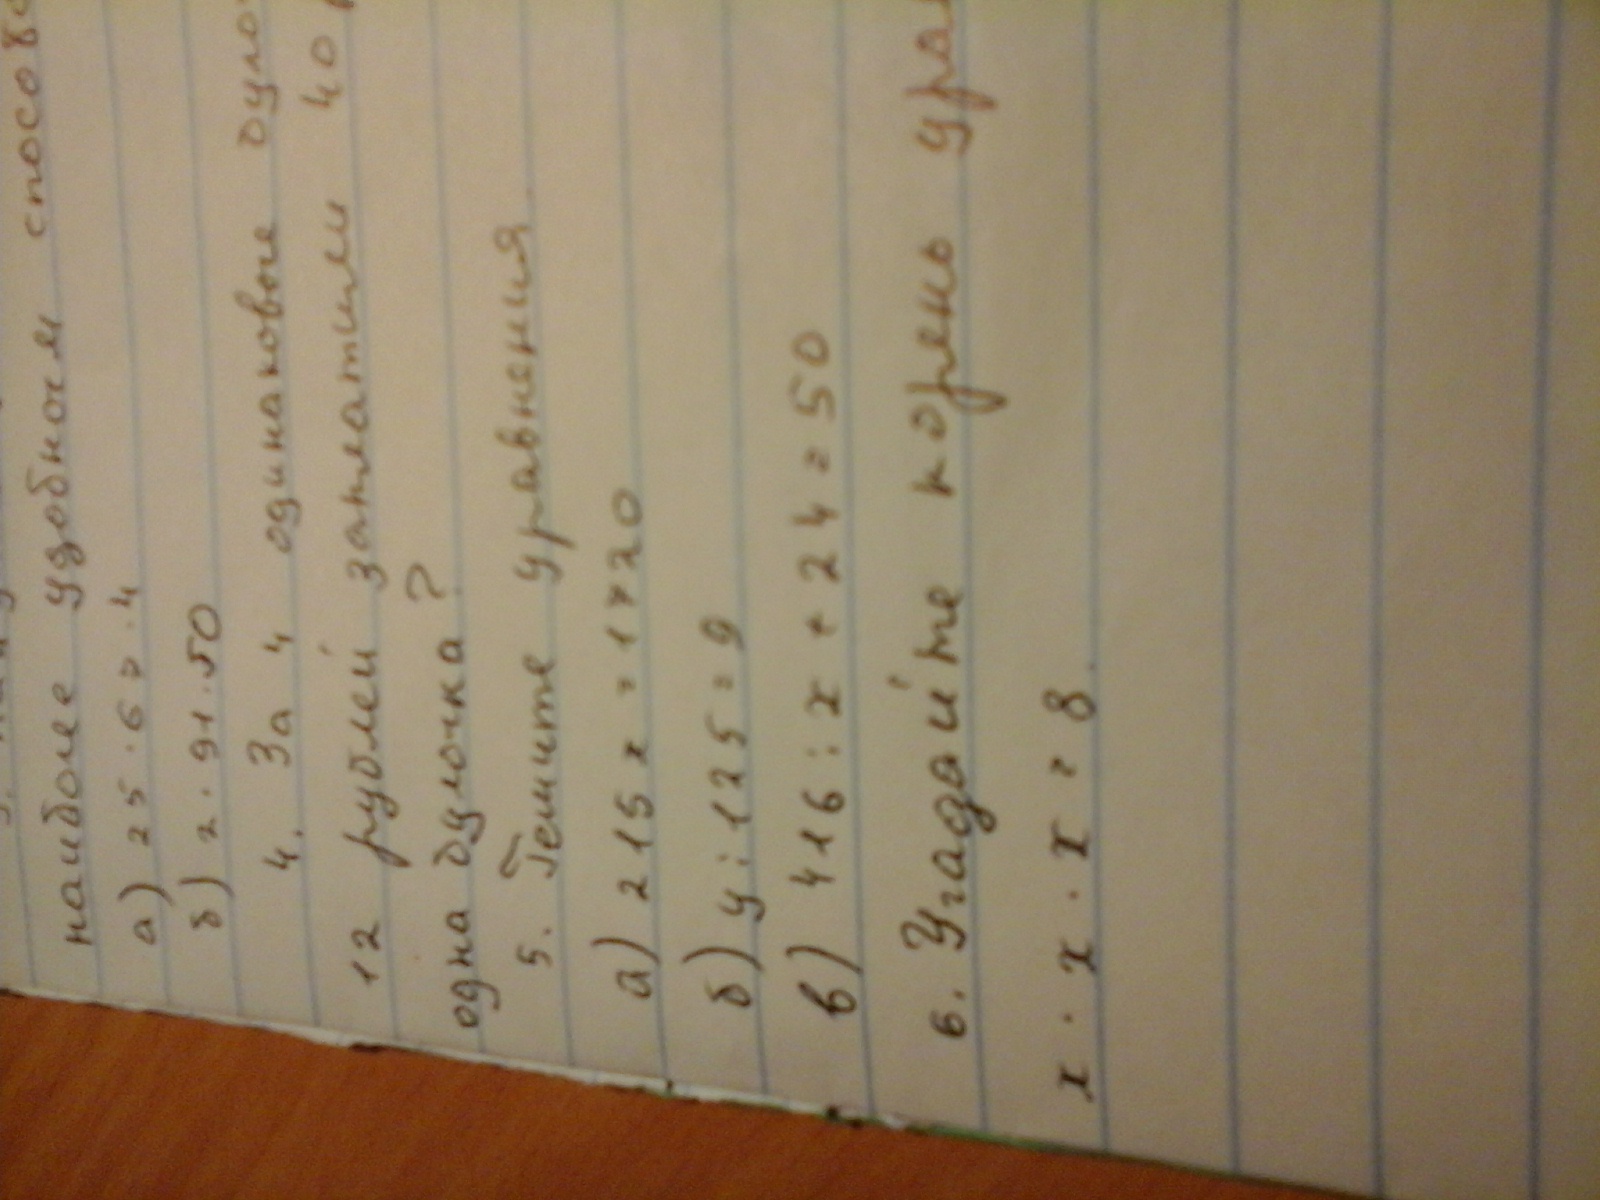 наиболее удобным
а) 25 · 67 · 4
б) 2 · 91 · 50
4. За 4 одинаковые
12 рублей заплатили 40
одна булочка?
5. Решите уравнения
а) 215 x = 1720
б) y : 125 = 9
в) 416 : x + 24 = 50
6. Угадайте корень
x · x · x = 8